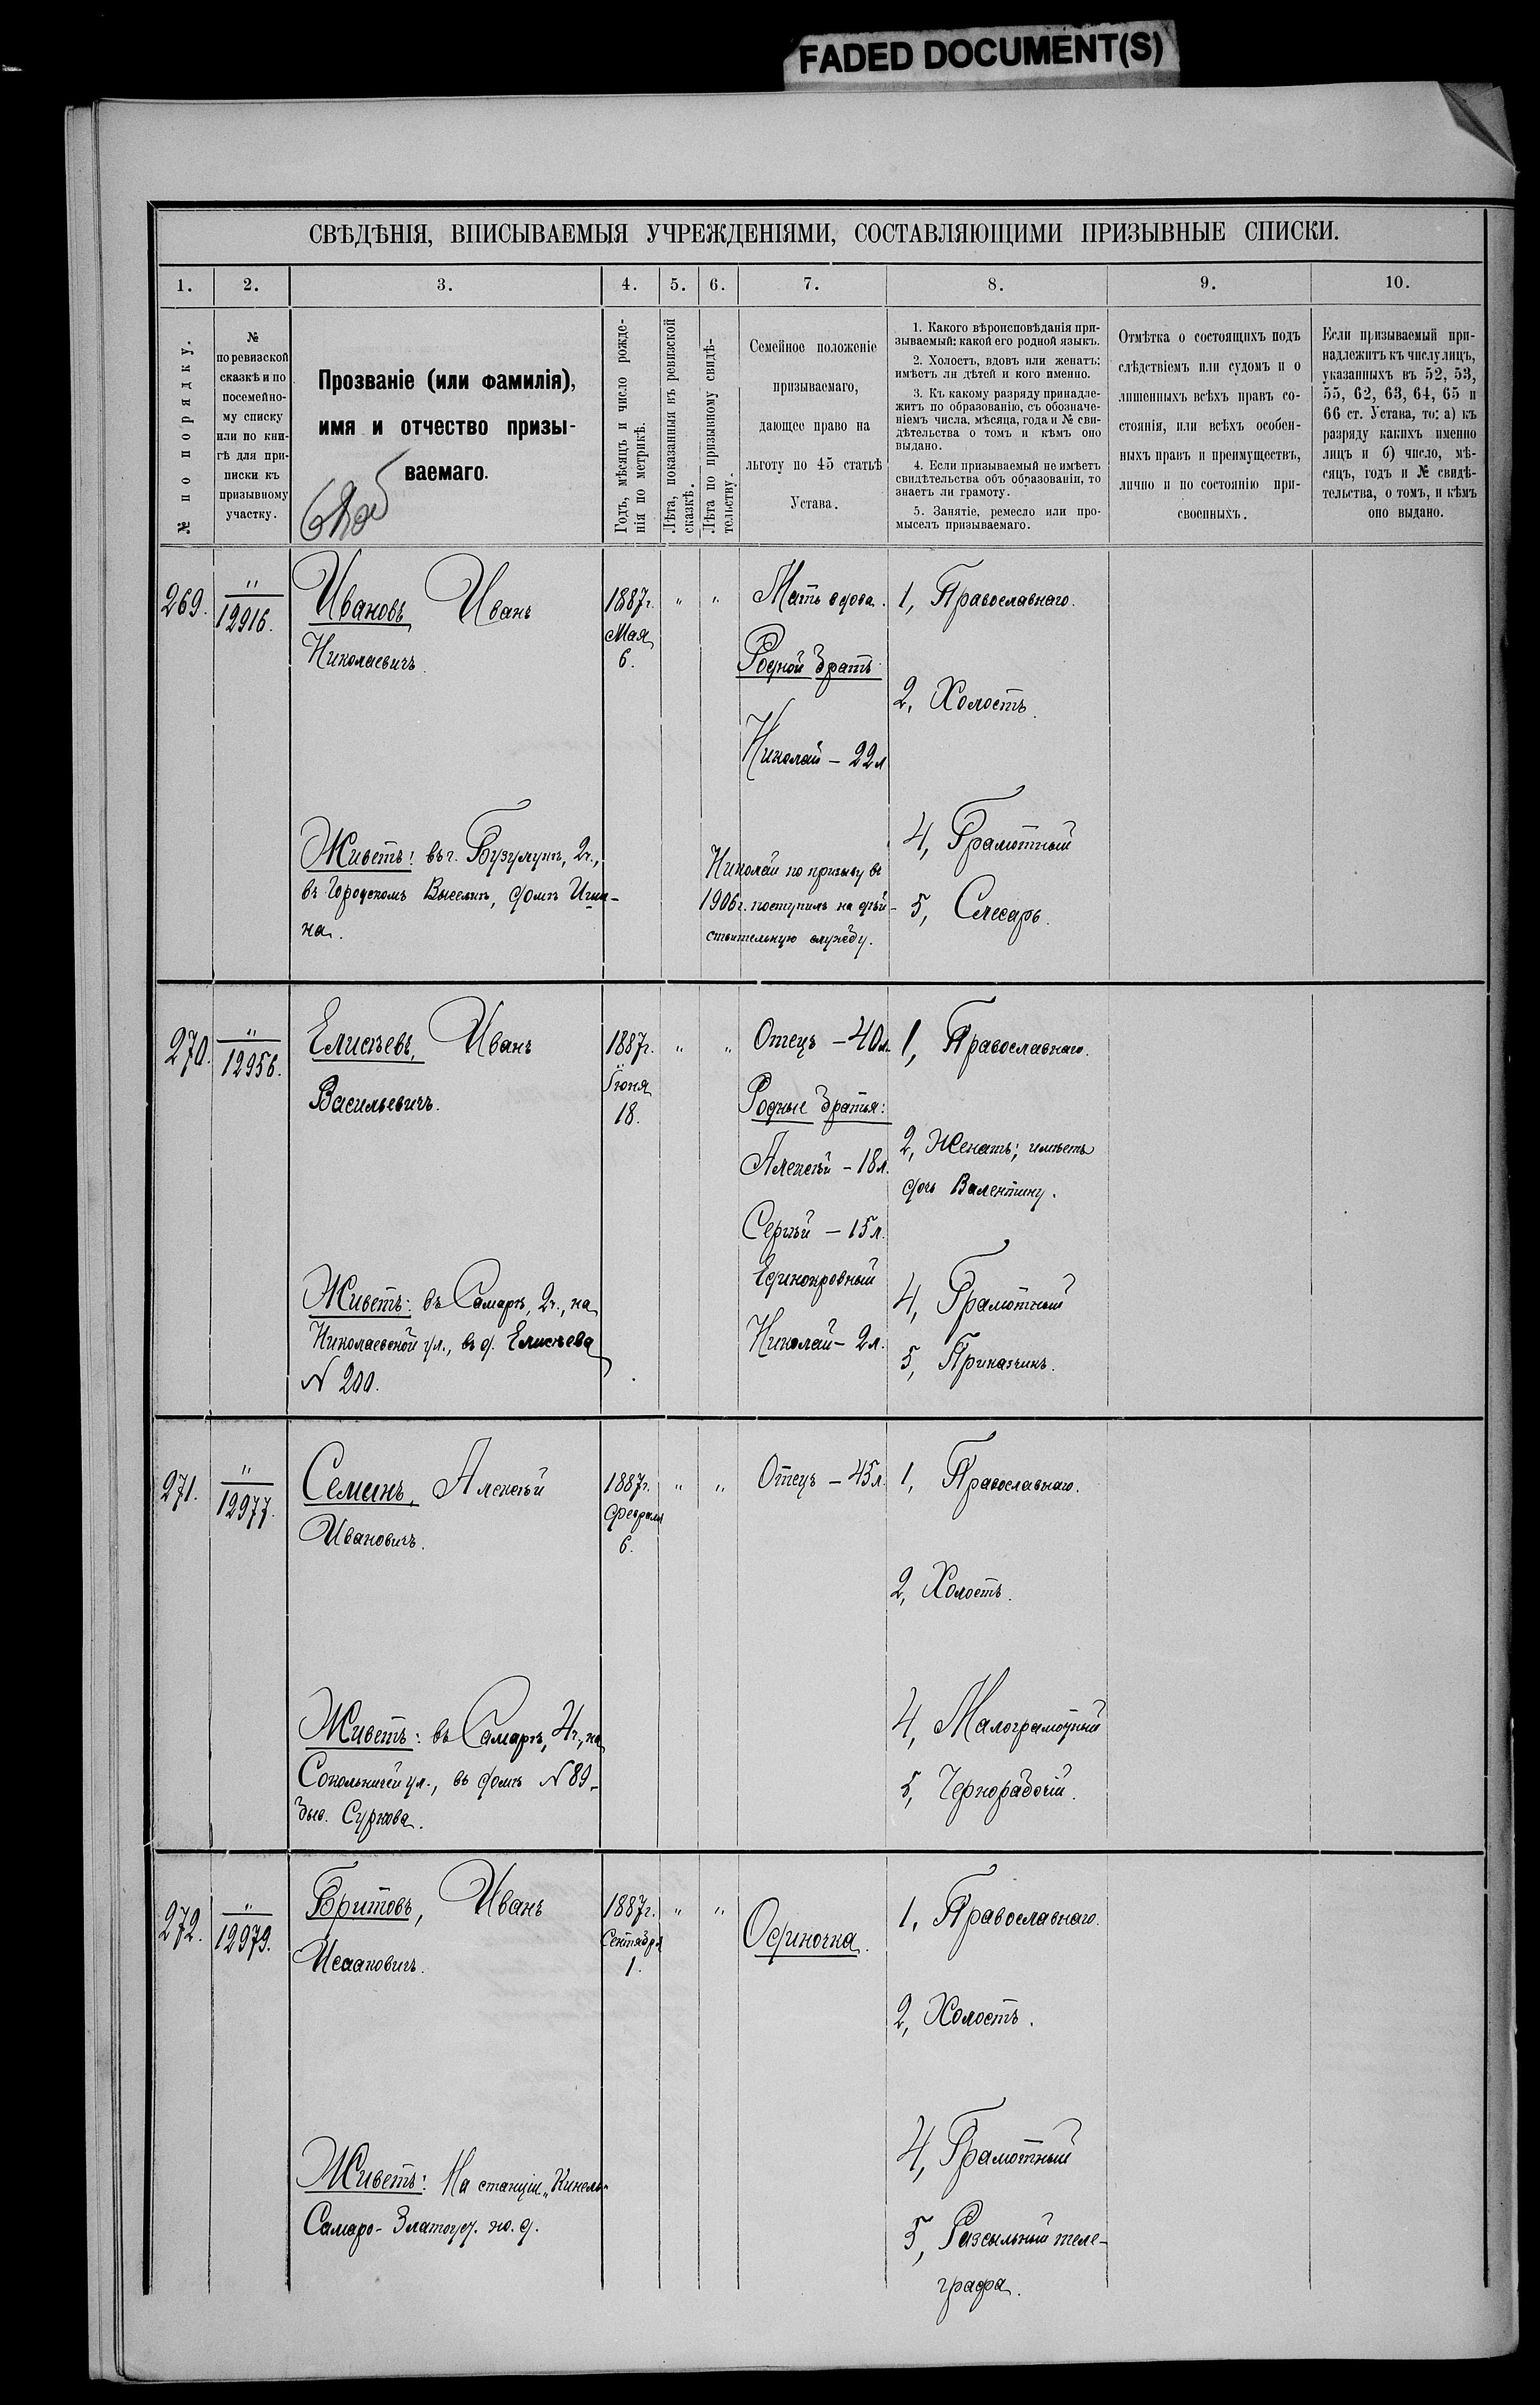 FADED DOCUMENT(S)
СВѢДѢНІЯ, ВПИСЫВАЕМЫЯ УЧРЕЖДЕНІЯМИ, СОСТАВЛЯЮЩИМИ ПРИЗЫВНЫЕ СПИСКИ.
1. 2. 3. 4. 5. 6. 7. 8. 9. 10.
№ по порядку.
№
по ревизской
сказкѣ и по
посемейно-
му списку
или по кни-
гѣ для при-
писки къ
призывному
участку.
Прозваніе (или фамилія),
имя и отчество призы-
ваемаго.
Годъ, мѣсяцъ и число рожде-
нія по метрикѣ.
Лѣта, показанныя въ ревизской
сказкѣ.
Лѣта по призывному свидѣ-
тельству.
Семейное положеніе
призываемаго,
дающее право на
льготу по 45 статьѣ
Устава.
1. Какого вѣроисповѣданія при-
зываемый: какой его родной языкъ.
2. Холостъ, вдовъ или женатъ:
имѣетъ ли дѣтей и кого именно.
3. Къ какому разряду принадле-
житъ по образованію, съ обозначе-
ніемъ числа, мѣсяца, года и № сви-
дѣтельства о томъ и кѣмъ оно
выдано.
4. Если призываемый не имѣетъ
свидѣтельства объ образованіи, то
знаетъ ли грамоту.
5. Занятіе, ремесло или про-
мыселъ призываемаго.
Отмѣтка о состоящихъ подъ
слѣдствіемъ или судомъ и о
лишенныхъ всѣхъ правъ со-
стоянія, или всѣхъ особен-
ныхъ правъ и преимуществъ,
лично и по состоянію при-
своенныхъ.
Если призываемый при-
надлежитъ къ числу лицъ,
указанныхъ въ 52, 53,
55, 62, 63, 64, 65 и
66 ст. Устава, то: а) къ
разряду какихъ именно
лицъ и б) число, мѣ-
сяцъ, годъ и № свидѣ-
тельства, о томъ, и кѣмъ
оно выдано.
269.
"
12916.
Ивановъ Иванъ
Николаевичъ.
Живетъ: въ г. Бузулукѣ, 2ч.,
въ Городскомъ Выселкѣ, домъ
на.
1887г.
Мая
6.
" "
Мать вдова.
Родной братъ
Николай – 22л
Николай по призыву въ
1906г. поступилъ на дѣй-
ствительную службу.
1, Православнаго.
2, Холостъ.
4, Грамотный
5, Слесарь.
270.
"
12956.
Елисѣевъ, Иванъ
Васильевичъ.
Живетъ: въ Самарѣ, 2ч., на
Николаевской ул., въ д. Елисѣева
N 200.
1887г.
Іюня
18.
" "
Отецъ – 40л.
Родные братья:
Алексѣй – 18л.
Сергѣй – 15л.
Единокровный
Николай – 2л.
1, Православнаго.
2, Женатъ; имѣетъ
дочь Валентину.
4, Грамотный
5, Приказчикъ.
271.
"
12977.
Семинъ, Алексѣй
Ивановичъ.
Живетъ: въ Самарѣ, 4ч., на
Сокольничей ул., въ домѣ N 89-
быв. Суркова.
1887г.
Февраля
6.
" "
Отецъ – 45л.
1, Православнаго.
2, Холостъ.
4, Малограмотный
5, Чернорабочій.
272.
"
12979.
Бритовъ, Иванъ
Исааковичъ.
Живетъ: На станціи "Кинель"
Самаро-Златоуст. ж. д.
1887г.
Сентября
1.
" "
Одиночка.
1, Православнаго.
2, Холостъ.
4, Грамотный
5, Разсыльный теле-
графа.